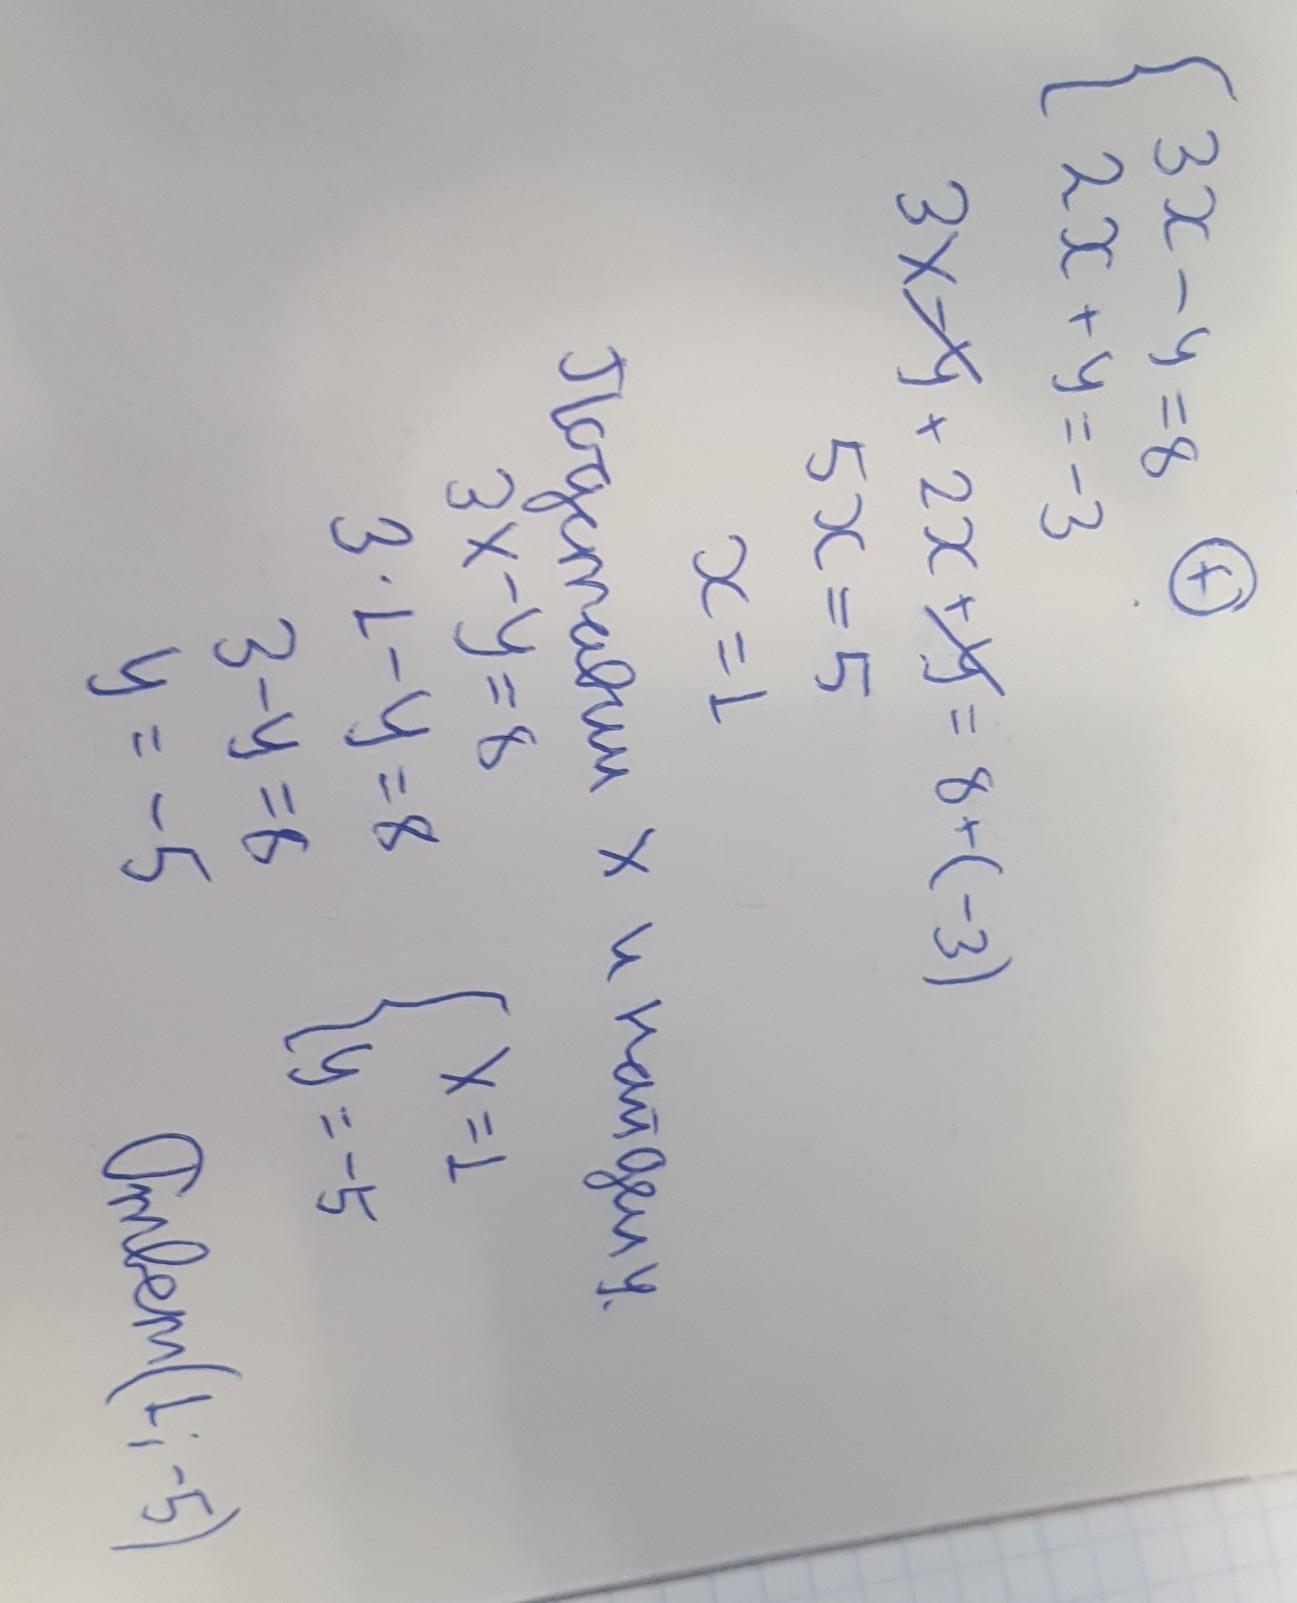 3x - y = 8 (+)
2x + y = -3
3x - y + 2x + y = 8 + (-3)
5x = 5
x = 1
Подставим x и найдем y.
3x - y = 8
3 · 1 - y = 8
3 - y = 8
y = -5
x = 1
y = -5
Ответ (1; -5)